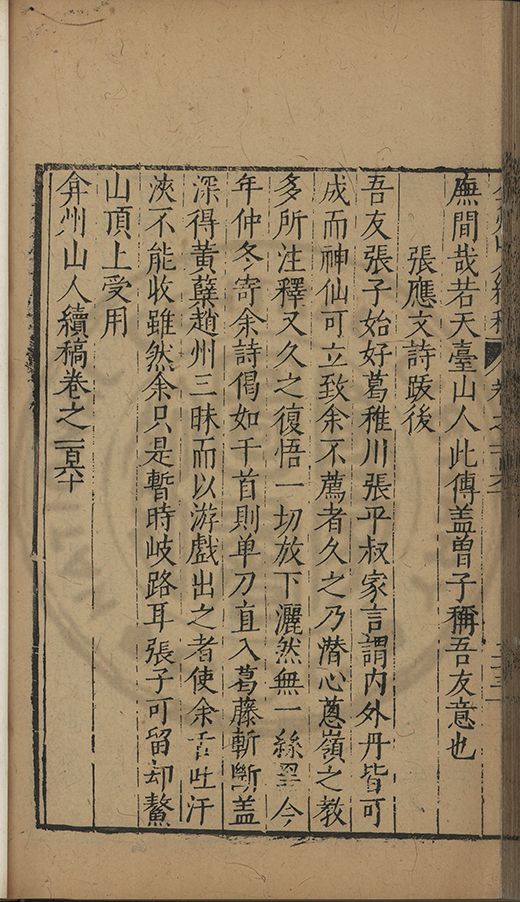 廡間哉若天臺山人此傳盖曽子稱吾友意也
張應文詩跋後
吾友張子始好葛稚川張平叔家言謂内外丹皆可
成而神仙可立致余不薦者久之乃潜心蔥嶺之教
多所注釋又久之復悟一切放下灑然無一絲罣今
年仲冬寄余詩偈如干首則单刀直入葛藤斬斷盖
深得黄蘖趙州三昧而以游戲出之者使余舌吐汗
浹不能收雖然余只是暫時岐路耳張子可留却鰲
山頂上受用
弇州山人續稿卷之一百六十